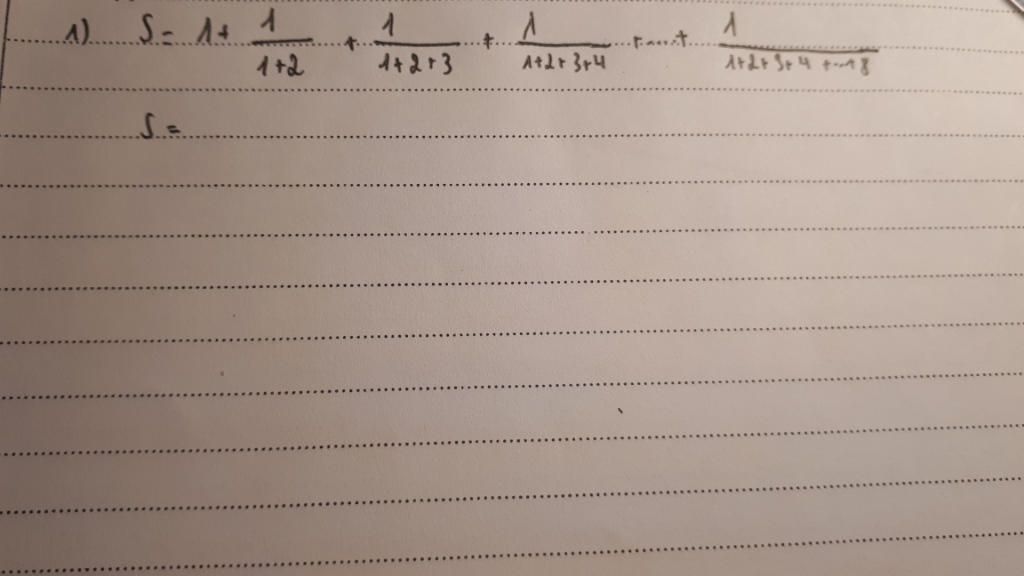 1) S = 1 + 1/(1+2) + 1/(1+2+3) + 1/(1+2+3+4) + .... + 1/(1+2+3+4+...+8)
S =